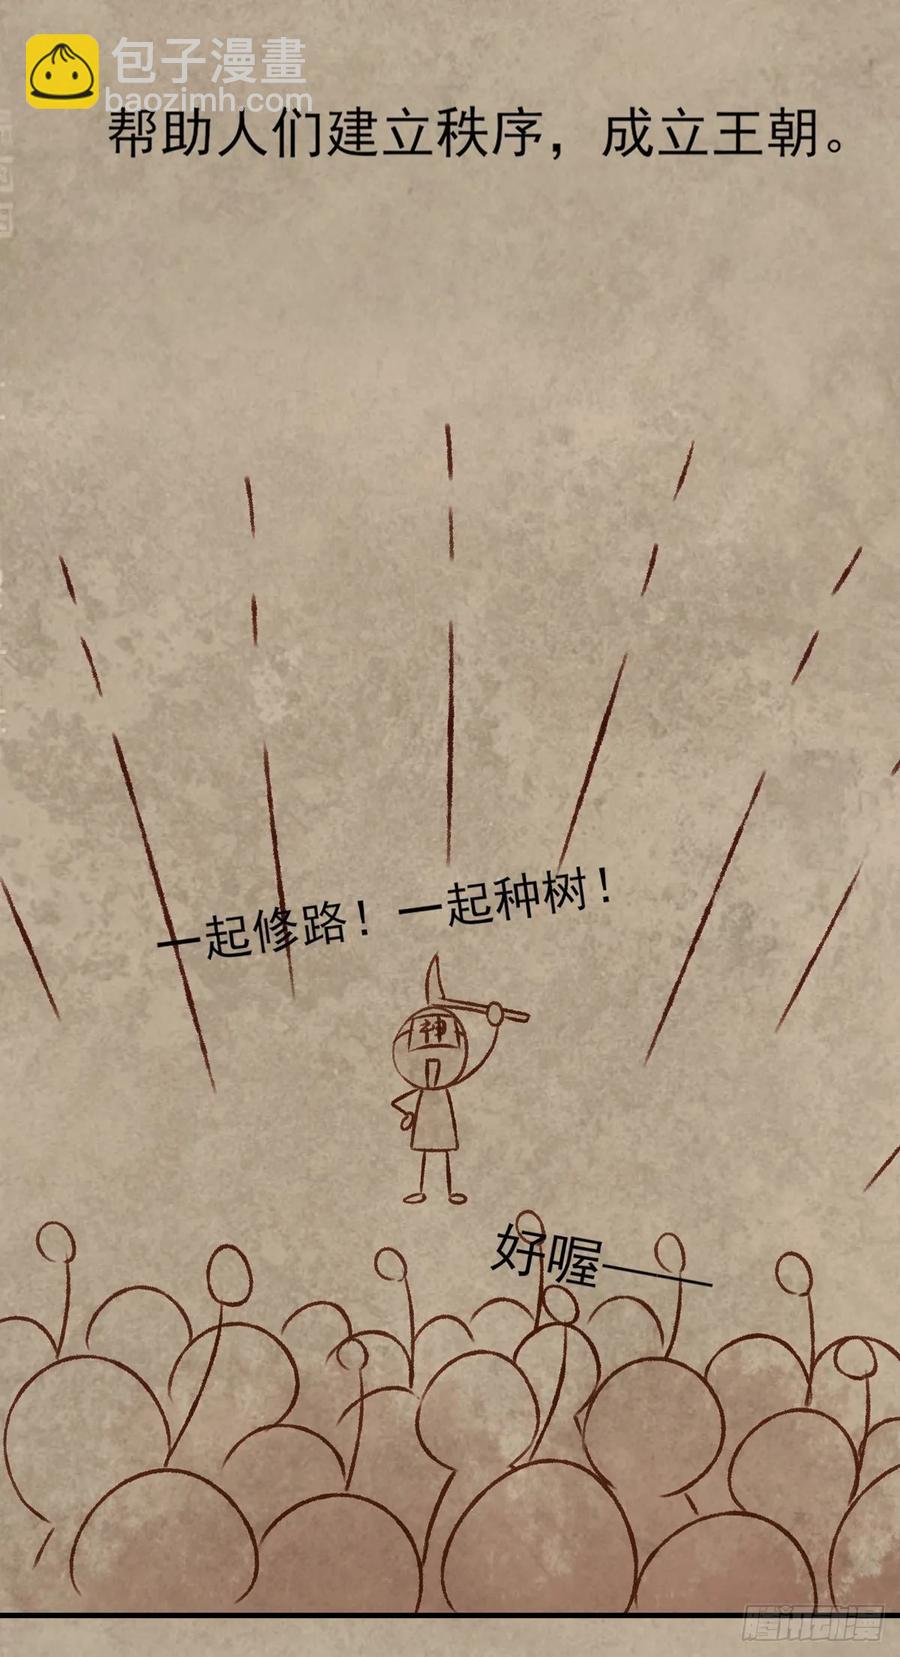 包子漫畫
baozimh.com
帮助人们建立秩序，成立王朝。
一起修路！一起种树！
神
好喔——
腾讯动漫